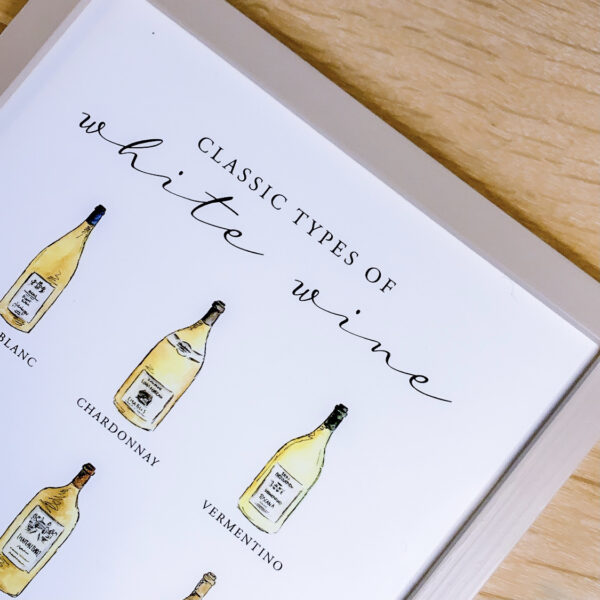 CLASSIC TYPES OF
white wine
BLANC
CHARDONNAY
VERMENTINO